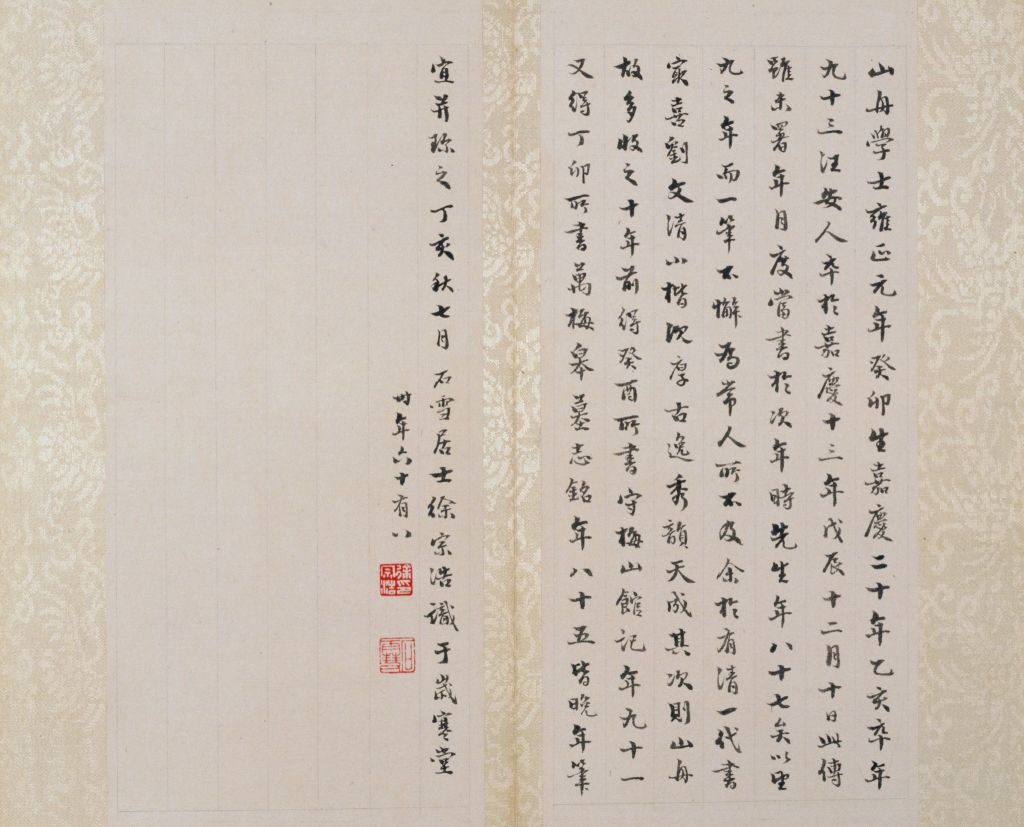 山舟學士雍正元年癸卯生嘉慶二十年乙亥卒年
九十三汪安人卒於嘉慶十三年戊辰十二月十日此傳
雖未署年月度當書於次年時先生年八十七矣以望
九之年而一筆不懈為常人所不及余於有清一代書
家喜劉文清小楷沉厚古逸秀韻天成其次則山舟
故多收之十年前得癸酉所書守梅山館記年九十一
又得丁卯所書萬梅皋墓志銘年八十五皆晚年筆
宜並珍之丁亥秋七月石雪居士徐宗浩識于歲寒堂
時年六十有八
徐宗浩印
石雪